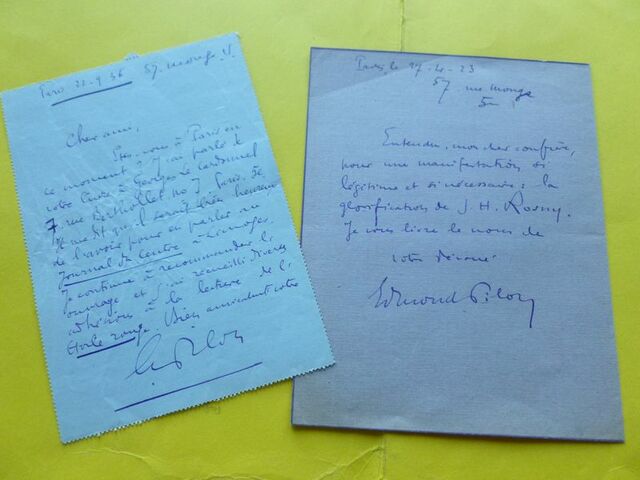 Paris 21-9-36 57. rue Monge V.
Cher ami,
Etes-vous à Paris en
ce moment ? J'ai parlé de
votre livre à Georges Le Cardonnel
7 rue Berthollet no 7 Paris. 5e
Il me dit qu'il serait bien heureux
de l'avoir pour en parler au
Journal du Centre à Limoges.
Je continue à recommander l'
ouvrage et j'ai recueilli diverses
adhésions à la lecture de l'
Etoile rouge. Bien amicalement votre
E. Pilon
Paris, le 27-4-23
57 rue Monge
5e
Entendu, mon cher confrère,
pour une manifestation si
légitime et si nécessaire : la
glorification de J. H. Rosny.
Je vous livre le nom de
votre dévoué
Edmond Pilon